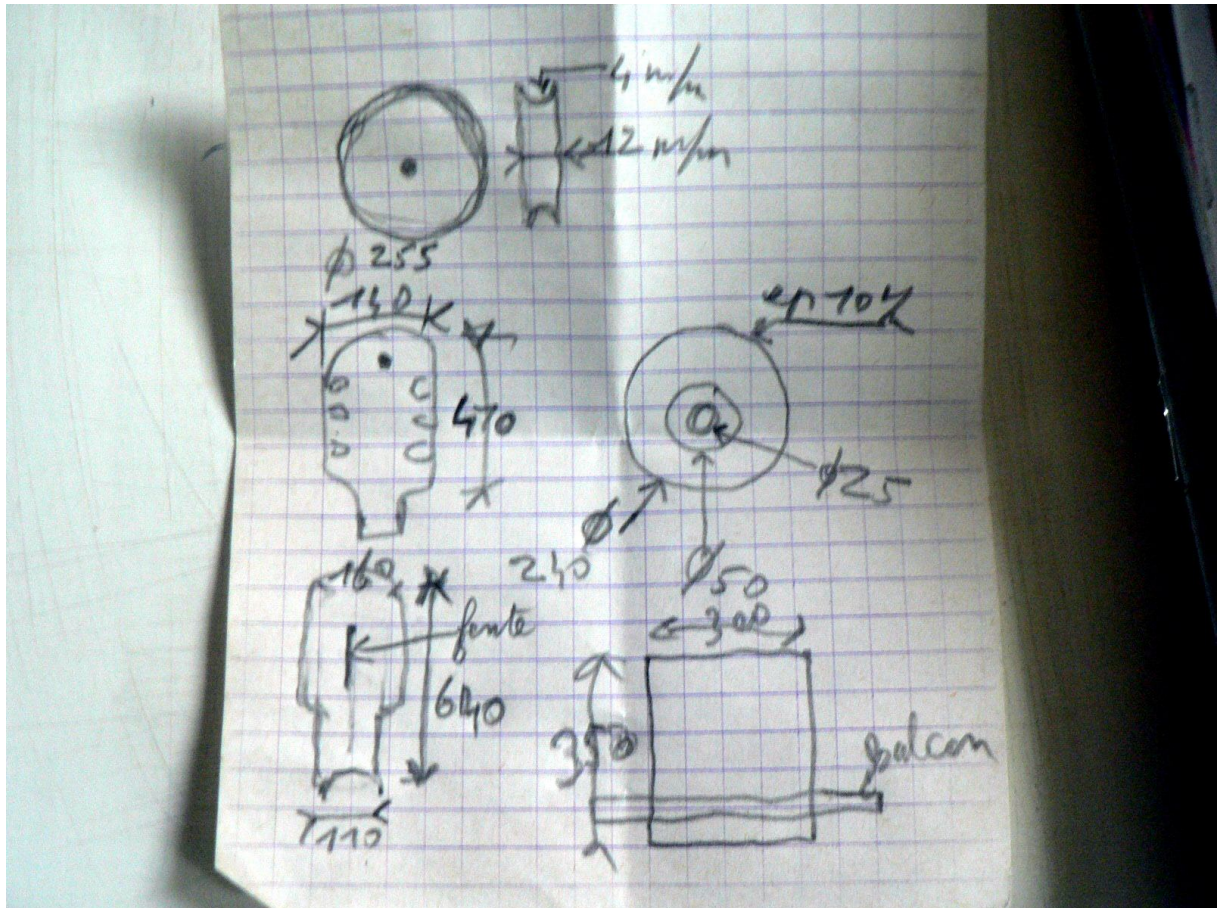 4 m/m
12 m/m
ϕ 255
140
470
ϕ25
ϕ
240
ϕ50
160
fente
640
110
300
350
balcon